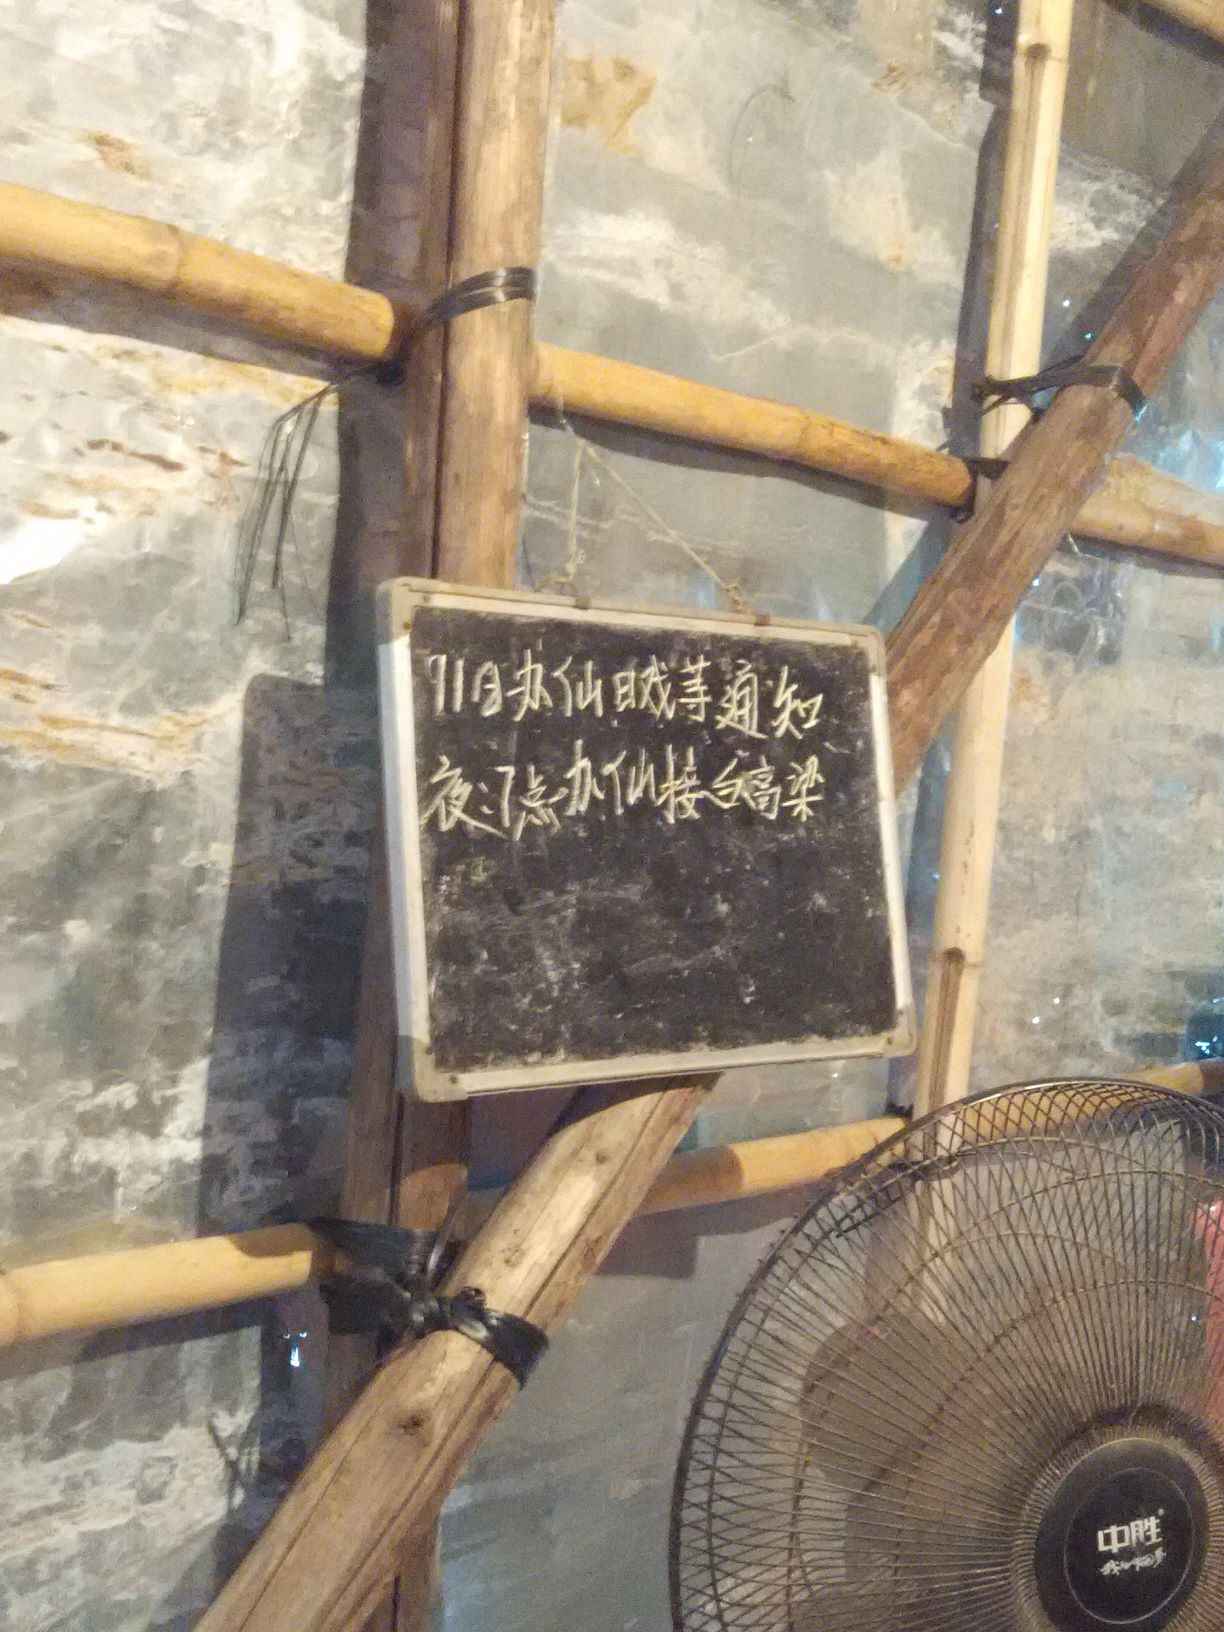 911日办仙日戏等通知
夜:7点办仙接台高梁
中胜